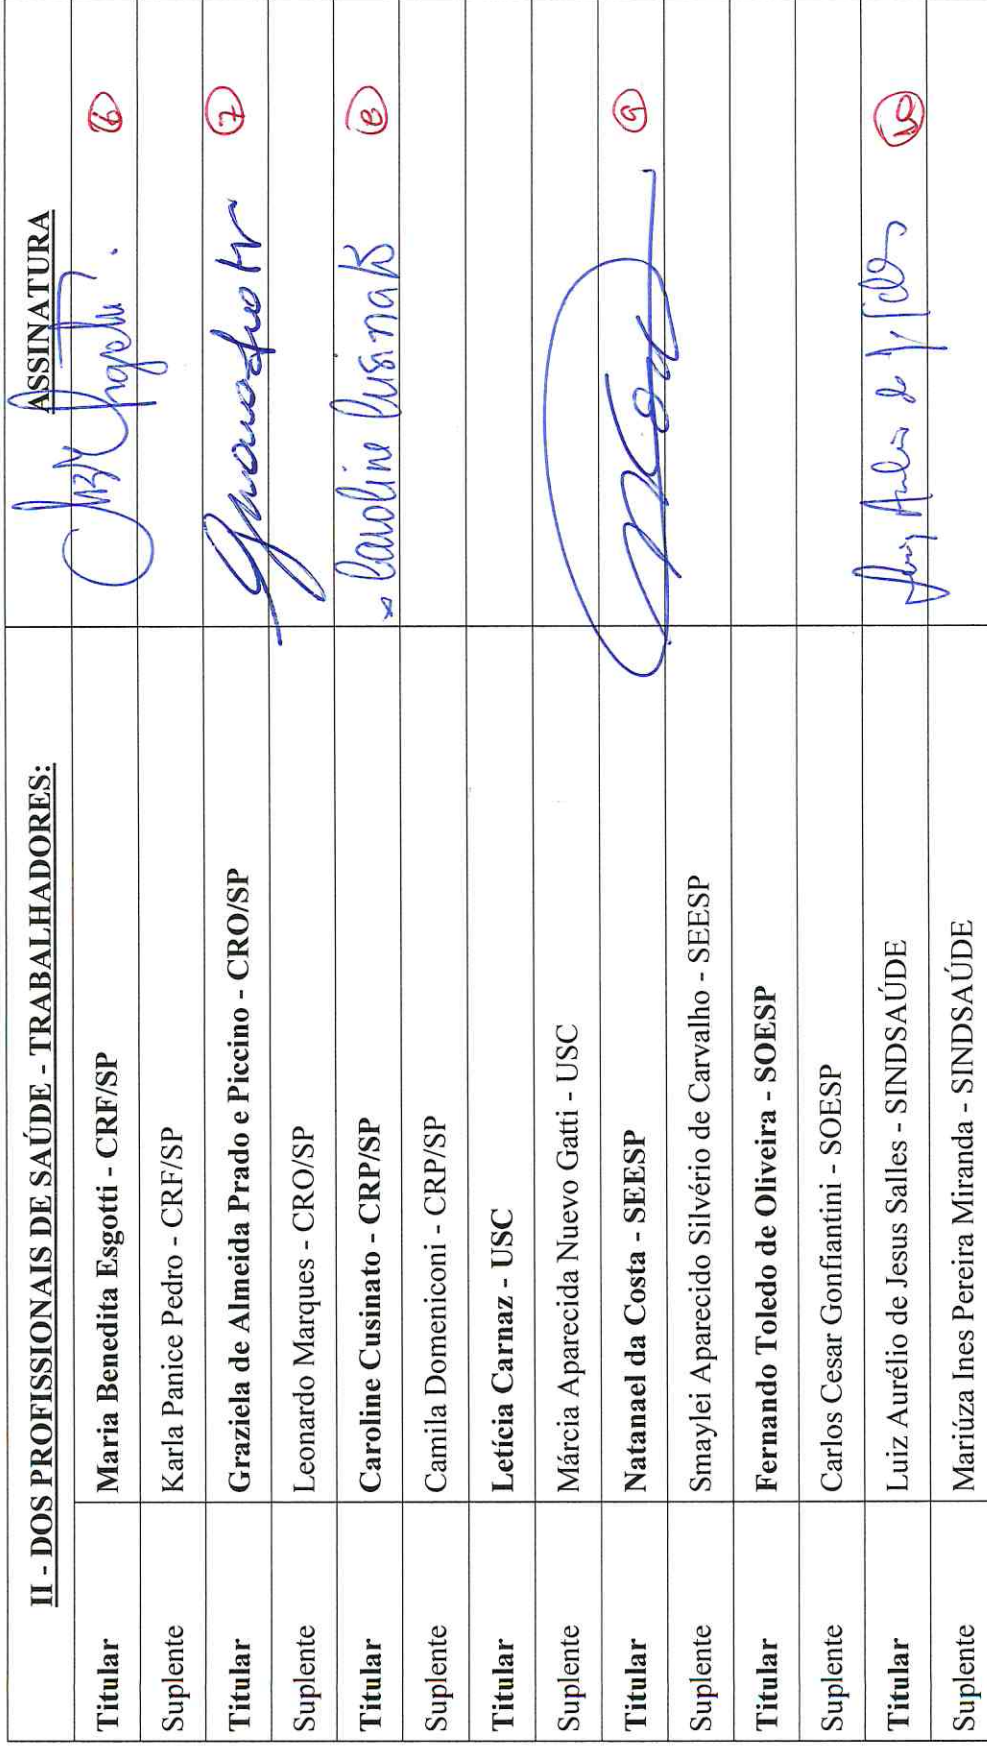 II - DOS PROFISSIONAIS DE SAÚDE - TRABALHADORES: ASSINATURA
Titular Maria Benedita Esgotti - CRF/SP 6
Suplente Karla Panice Pedro - CRF/SP
Titular Graziela de Almeida Prado e Piccino - CRO/SP 7
Suplente Leonardo Marques - CRO/SP
Titular Caroline Cusinato - CRP/SP x Caroline Cusinato 8
Suplente Camila Domeniconi - CRP/SP
Titular Letícia Carnaz - USC
Suplente Márcia Aparecida Nuevo Gatti - USC
Titular Natanael da Costa - SEESP 9
Suplente Smaylei Aparecido Silvério de Carvalho - SEESP
Titular Fernando Toledo de Oliveira - SOESP
Suplente Carlos Cesar Gonfiantini - SOESP
Titular Luiz Aurélio de Jesus Salles - SINDSAÚDE 10
Suplente Mariúza Ines Pereira Miranda - SINDSAÚDE